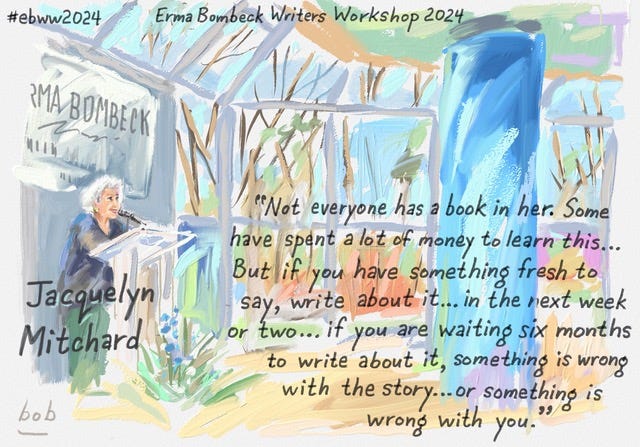 #ebww2024 Erma Bombeck Writers Workshop 2024
RMA BOMBECK
"Not everyone has a book in her. Some
have spent a lot of money to learn this...
But if you have something fresh to
say, write about it... in the next week
or two... if you are waiting six months
to write about it, something is wrong
with the story...or something is
wrong with you."
Jacquelyn
Mitchard
bob